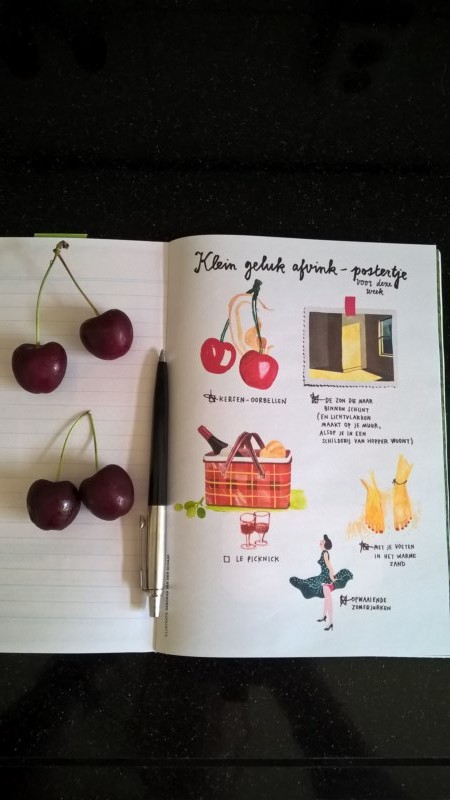 Klein geluk afvink-postertje
voor deze
week
KERSEN-OORBELLEN
DE ZON DIE NAAR
BINNEN SCHIJNT
(EN LICHTVLAKKEN
MAAKT OP JE MUUR,
ALSOF JE IN EEN
SCHILDERIJ VAN HOPPER WOONT)
LE PICKNICK
MET JE VOETEN
IN HET WARME
ZAND
OPWAAIENDE
ZOMERJURKEN